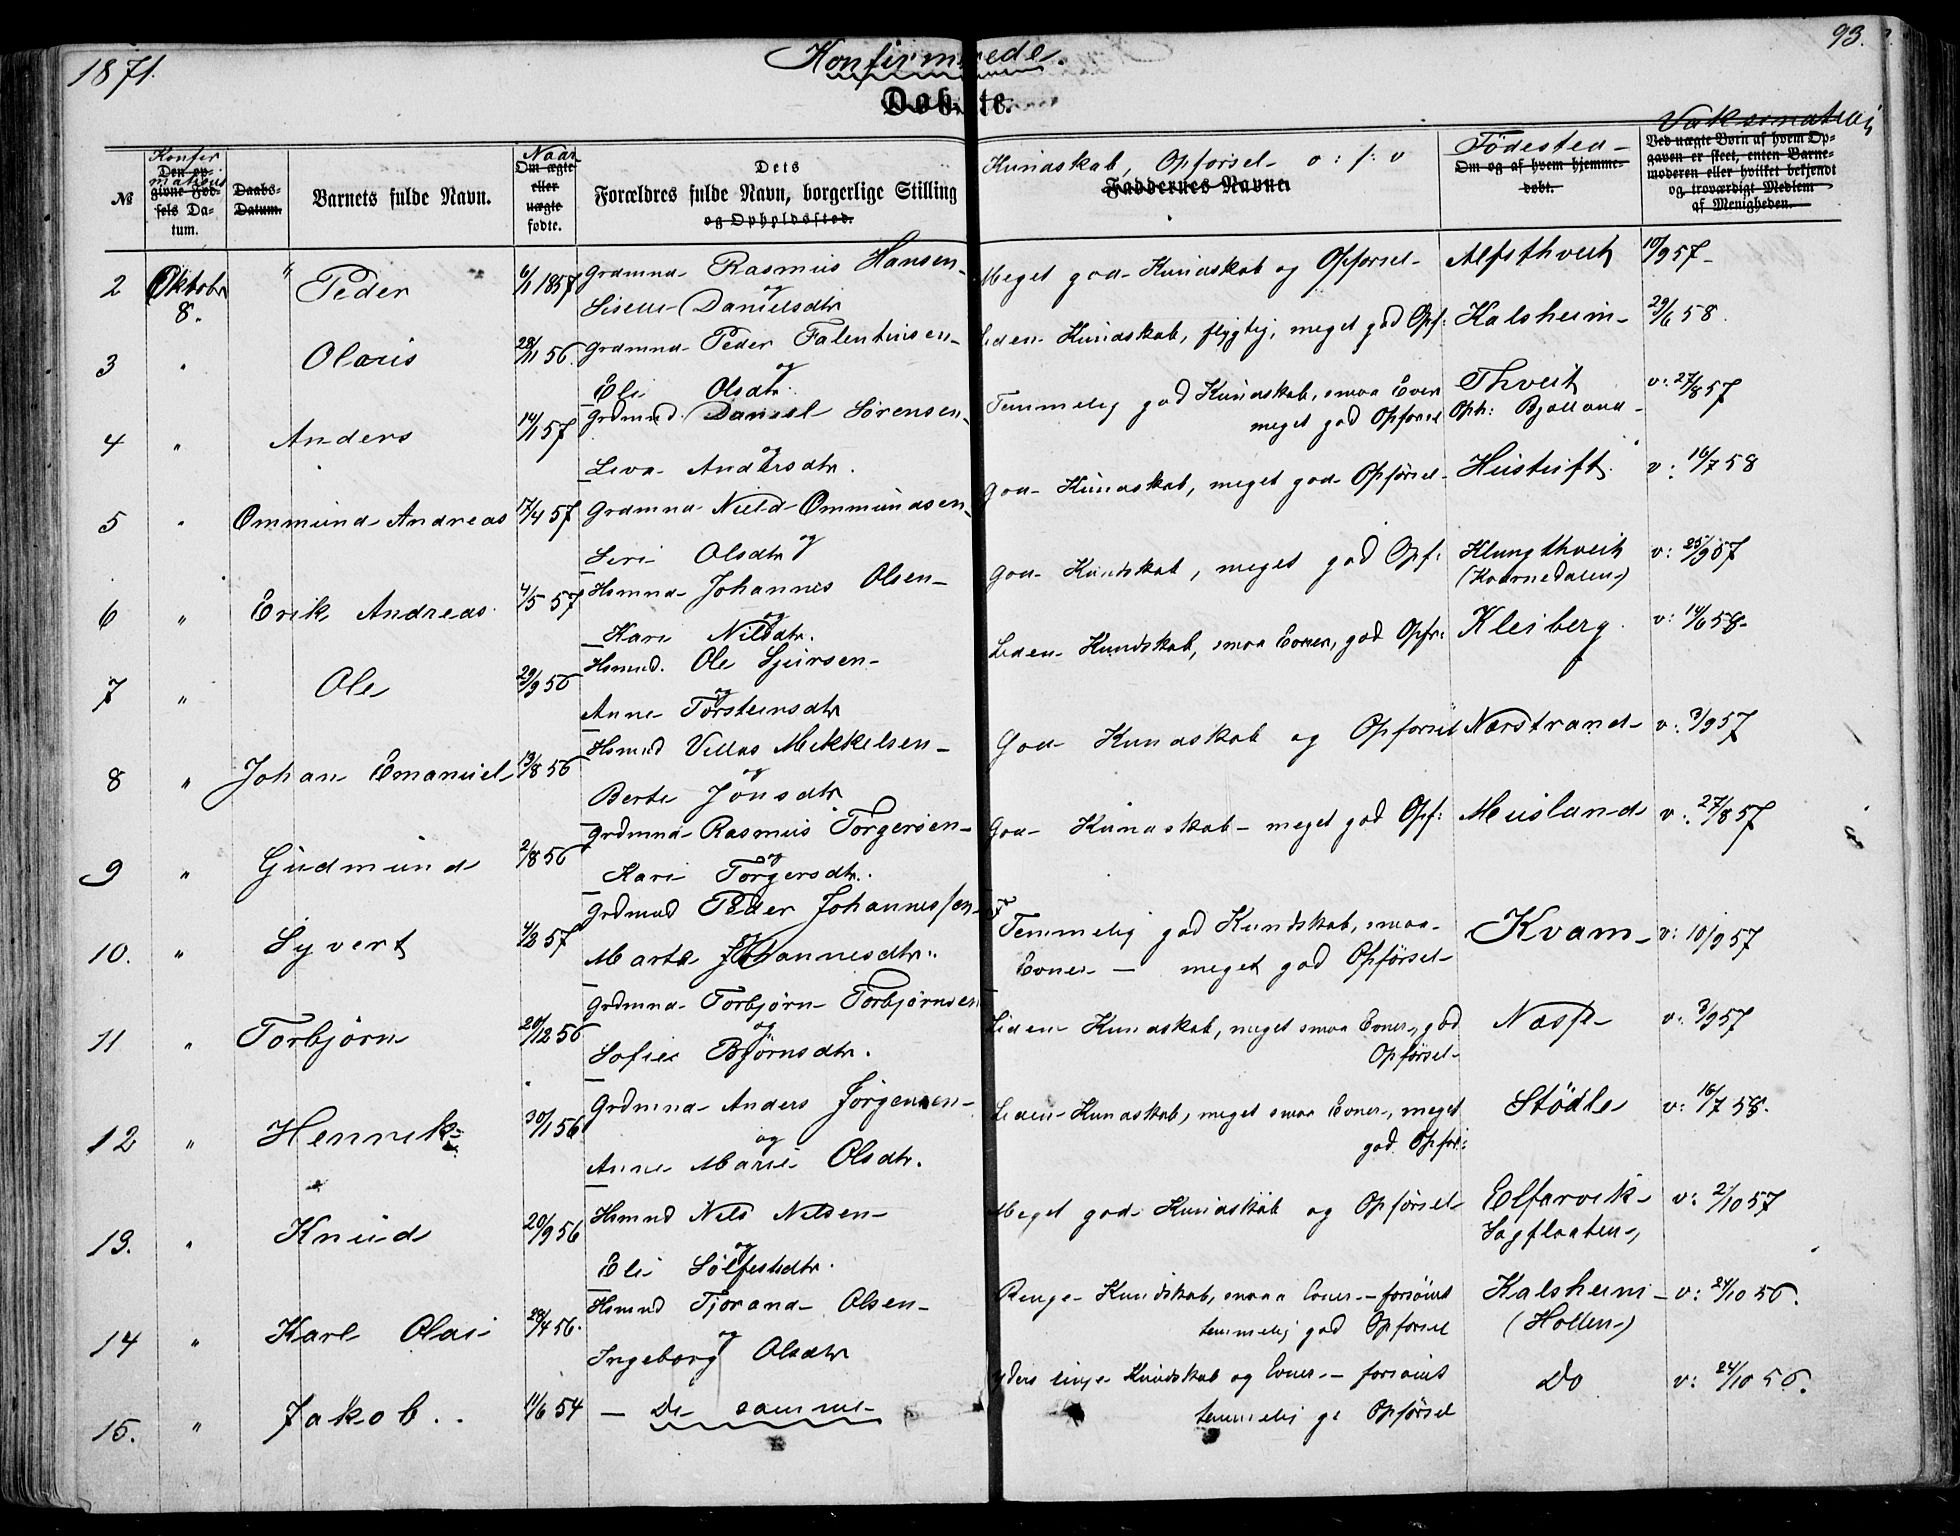 1871.
Konfirmerede.
93.
Døbte.
Vaksinations
№
Konfirmations
Den opgivne Fødsels Datum.
Daabs-Datum.
Barnets fulde Navn.
Naar
Om ægte eller uægte fødte.
Dets
Forældres fulde Navn, borgerlige Stilling
og Opholdssted.
Kundskab, Opførsel o: s: v
Faddernes Navne.
Fødested
Om og af hvem hjemmedøbt.
Ved uægte Børn af hvem Opgaven er skeet, enten Barnemoderen eller hvilket bekjendt og troværdigt Medlem af Menigheden.
2 Oktobr 8. " Peder 6/11 1857 Grdmnd Rasmus Hansen og Siselle Danielsdtr Meget god Kundskab og Opførsel Alfsthveit 10/9 57
3 " Olaus 28/11 56. Grdmnd Peder Falentinsen og Eli Olsdtr. Liden Kundskab, flygtig, meget god Opf: Kalsheim 29/6 58.
4 " Anders 14/1 57 Grdmnd. Daniel Sørensen og Siva Andersdtr. Temmelig god Kundskab, smaa Evner meget god Opførsel Thveit Oph: Bjelland v: 27/8 57
5 " Ommund Andreas 17/4 57 Grdmnd Nield Ommundsen og Siri Olsdtr God Kundskab, meget god Opførsel Hustuft. v: 16/7 58
6 " Erik Andreas 4/5 57 Hsmnd Johannes Olsen og Kari Nilsdtr. God Kundskab, meget god Opf: Klungthveit (Kvernedalen) v: 25/9 57
7 " Ole 29/9 56 Hsmnd. Ole Sjursen og Anne Torsteinsdtr Liden Kundskab, smaa Evner, god Opfr: Kleiberg. v: 14/6 58
8 " Johan Emanuel 13/8 56 Hsmnd Villas Mikkelsen og Berte Jonsdtr God Kundskab og Opførsel Nærstrand v: 3/9 57
9 " Gudmund 2/8 56 Grdmnd Rasmus Torgersen og Kari Torgersdtr. God Kundskab meget god Opf: Meisland v: 27/8 57
10. " Syvert 4/2 57 Grdmnd Peder Johannessen og Marta Johannesdtr. Temmelig god Kundskab, smaa Evner — meget god Opførsel Kvam v: 10/9 57
11 " Torbjørn 20/12 56 Grdmnd Torbjørn Torbjørnsen og Sofie Bjørnsdtr. Liden Kundskab, meget smaa Evner, god Opførsel Næsse v: 3/9 57
12 " Henrik 30/1 56 Grdmnd Anders Jørgensen og Anne Marie Olsdtr. Liden Kundskab, meget smaa Evner, meget god Opfør: Stødle v: 16/7 58.
13. " Knud 20/9 56 Hsmnd Nils Nilsen og Eli Sølfestsdtr. Meget god Kundskab og Opførsel Elfarvik Sagflaaten, v: 2/10 57
14 " Karl Olai 28/4 56. Hsmnd Tjorand Olsen og Ingeborg Olsdtr Ringe Kundskab, smaa Evner — forsømt temmelig god Opførsel Kalsheim (Hollen) v: 24/10 56.
15. " Jakob 11/6 54 — De samme Yders ringe Kundskab og Evner — forsømt temmelig g: Opførsel Do v: 24/10 56.